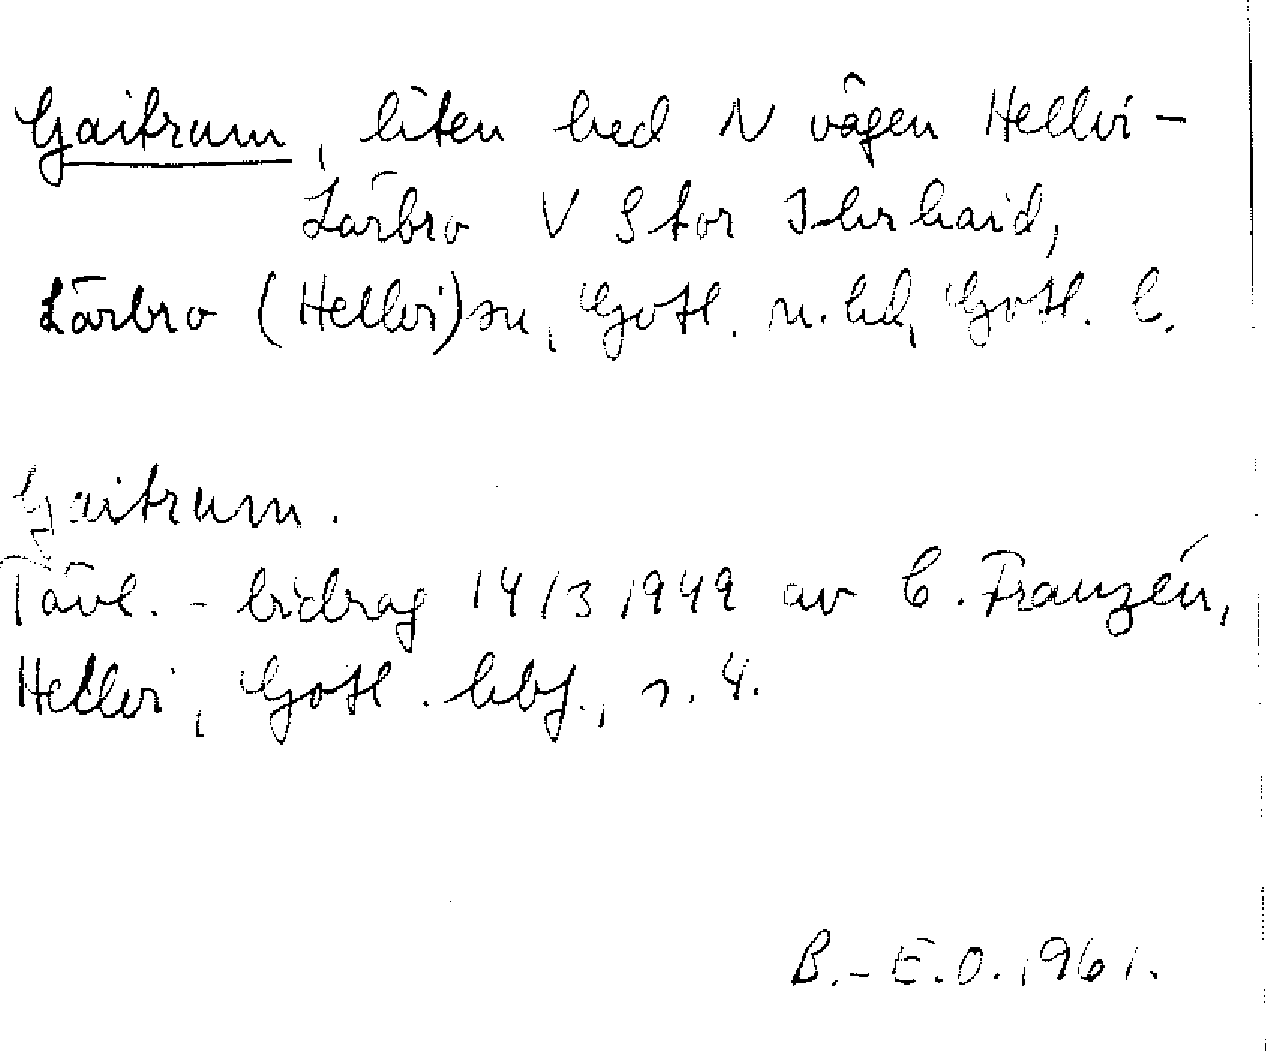 Gaitrum, liten hed N vägen Hellvi -
Lärbro V Stor Ihrhaid,
Lärbro (Hellvi) sn, Gotl. n. hd, Gotl. l.
Gaitrum.
Tävl. - bidrag 14/3 1949 av C. Franzén,
Hellvi, Gotl. hbf., s. 4.
B.-E.O. 1961.